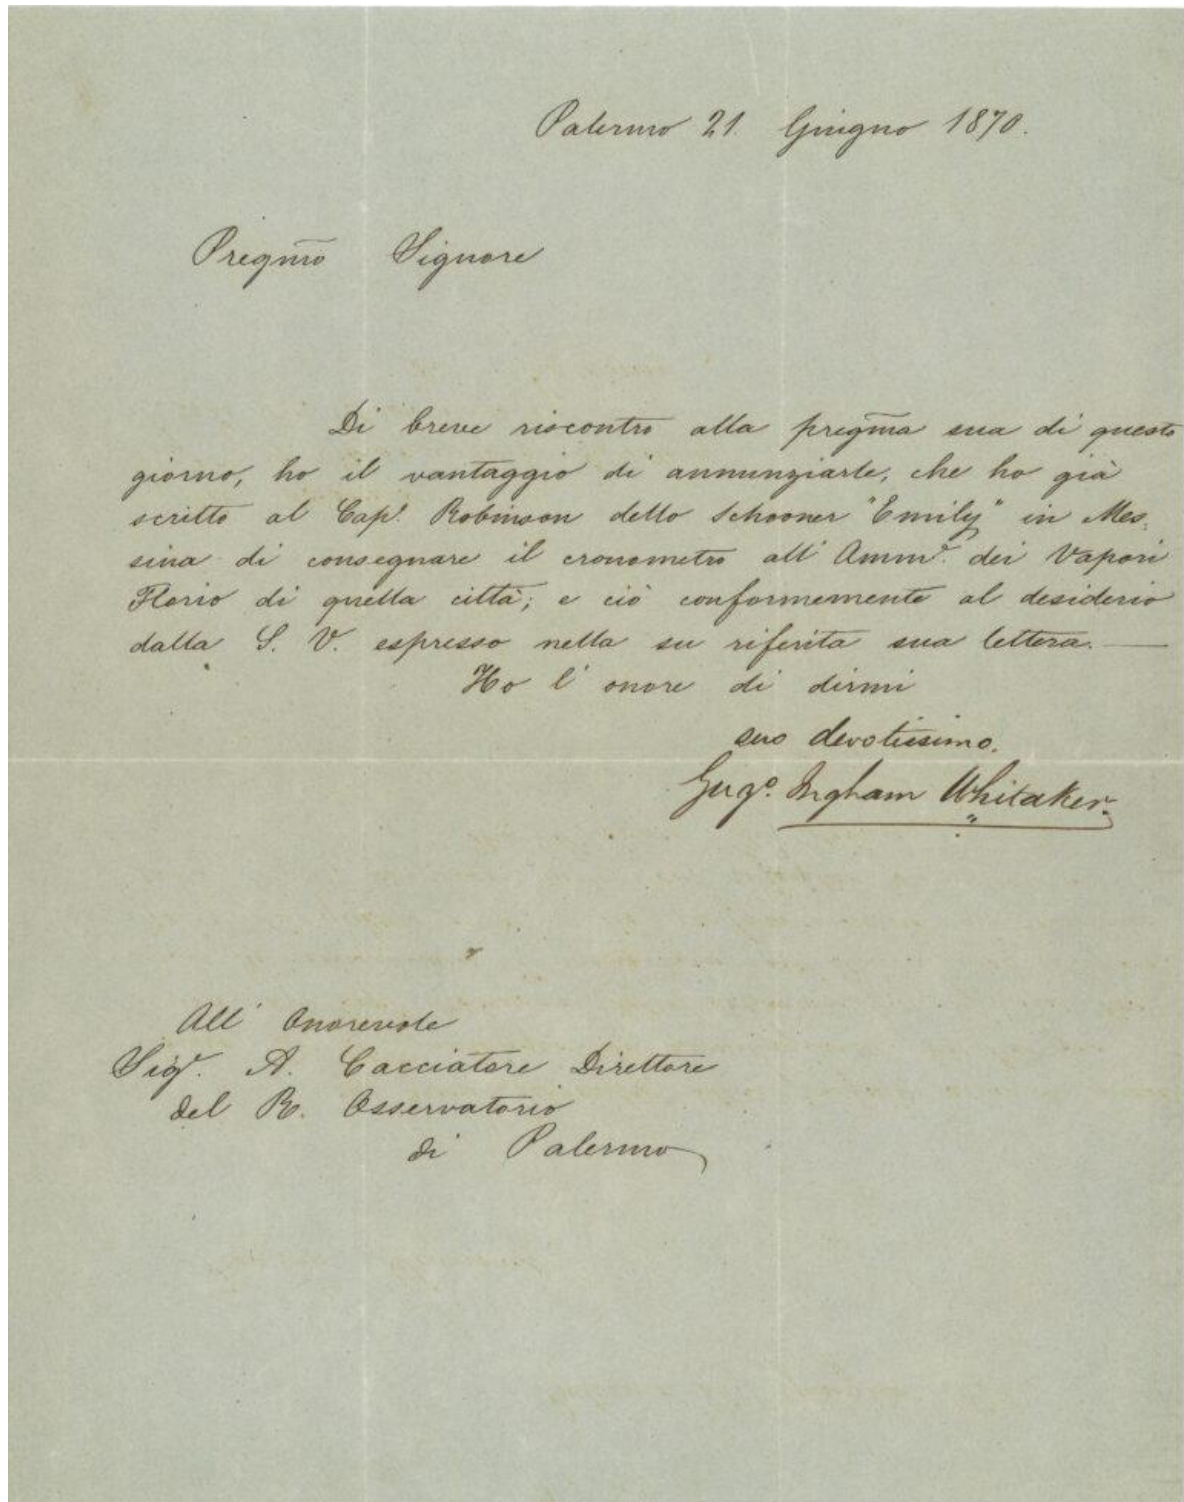 Palermo 21. Giugno 1870.
Pregmo Signore
Di breve riscontro alla pregma sua di questo
giorno, ho il vantaggio di annunziarle, che ho già
scritto al Capt. Robinson dello Schooner "Emily" in Mes-
sina di consegnare il cronometro all' Ammre. dei Vapori
Florio di quella città; e ciò conformemente al desiderio
dalla S. V. espresso nella su riferita sua lettera. —
Ho l' onore di dirmi
suo devotissimo.
Gugo. Ingham Whitaker.
All' Onorevole
Sigr. A. Cacciatore Direttore
del R. Osservatorio
di Palermo